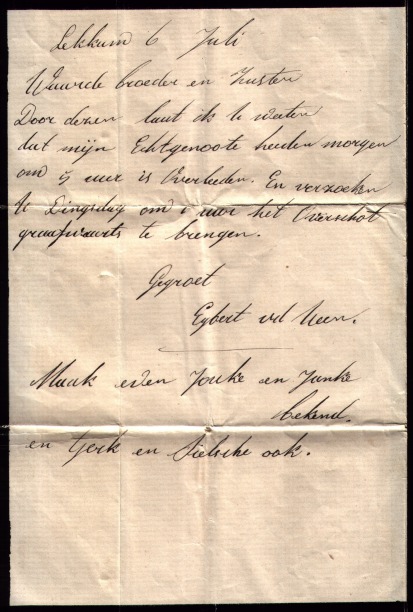 Lekkum 6 Juli
Waarde broeder en Zuster
Door dezen laat ik U weeten
dat mijn Echtgenoote heeden morgen
om 5 uur is Overleeden. En verzoeken
U Dingsdag om 1 uur het Overschot
graafwaarts te brengen.
Gegroet
Egbert vd Veen.
Maak even Jouke en Janke
bekend.
en Gerk en Sietske ook.